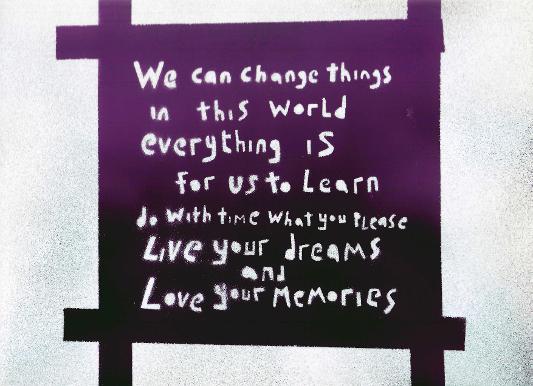 We can change things
in this world
everything IS
for us to Learn
do with time what you please
Live your dreams
and
Love your Memories